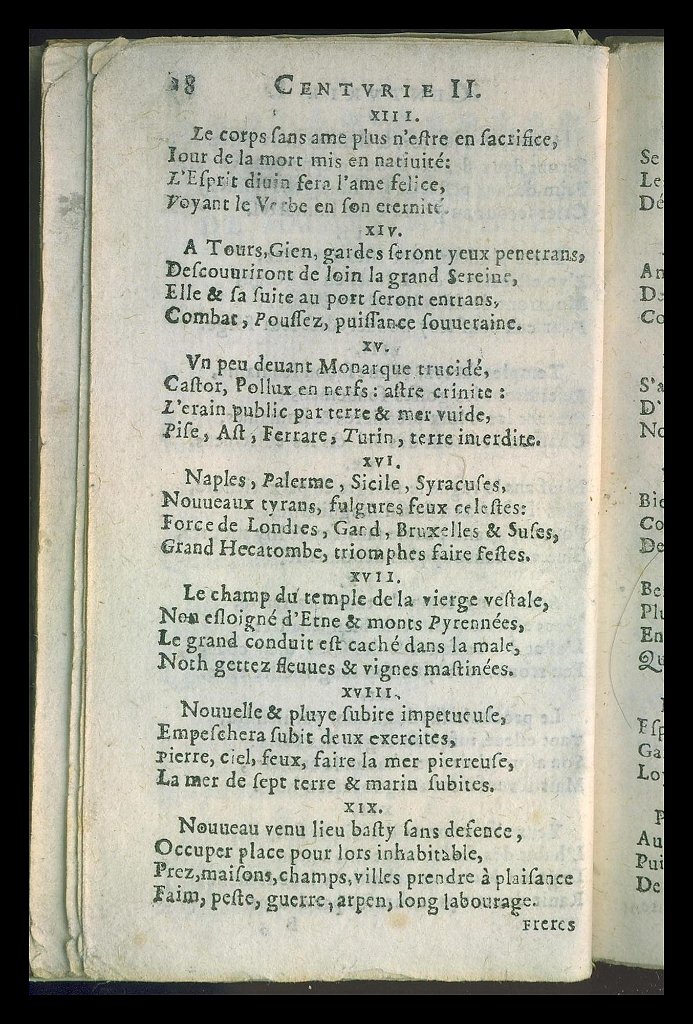 28 CENTVRIE II.
XIII.
Le corps ſans ame plus n'eſtre en ſacrifice,
Iour de la mort mis en natiuité:
L'Eſprit diuin fera l'ame felice,
Voyant le Verbe en ſon eternité.
XIV.
A Tours, Gien, gardes ſeront yeux penetrans,
Deſcouuriront de loin la grand Sereine,
Elle & ſa ſuite au port ſeront entrans,
Combat, Pouſſez, puiſſance ſouueraine.
XV.
Vn peu deuant Monarque trucidé,
Caſtor, Pollux en nerfs: aſtre crinite:
L'erain public par terre & mer vuide,
Piſe, Aſt, Ferrare, Turin, terre interdite.
XVI.
Naples, Palerme, Sicile, Syracuſes,
Nouueaux tyrans, fulgures feux celeſtes:
Force de Londres, Gand, Bruxelles & Suſes,
Grand Hecatombe, triomphes faire feſtes.
XVII.
Le champ du temple de la vierge veſtale,
Non eſloigné d'Etne & monts Pyrennées,
Le grand conduit eſt caché dans la male,
Noth gettez fleuues & vignes maſtinées.
XVIII.
Nouuelle & pluye ſubite impetueuſe,
Empeſchera ſubit deux exercites,
Pierre, ciel, feux, faire la mer pierreuſe,
La mer de ſept terre & marin ſubites.
XIX.
Nouueau venu lieu baſty ſans defence,
Occuper place pour lors inhabitable,
Prez, maiſons, champs, villes prendre à plaiſance
Faim, peſte, guerre, arpen, long labourage.
Freres
Se
Le
Dé
An
De
Co
S'a
D'
No
Bie
Co
De
Be
Plu
En
Qu
Eſp
Ga
Loy
P
Au
Pui
De